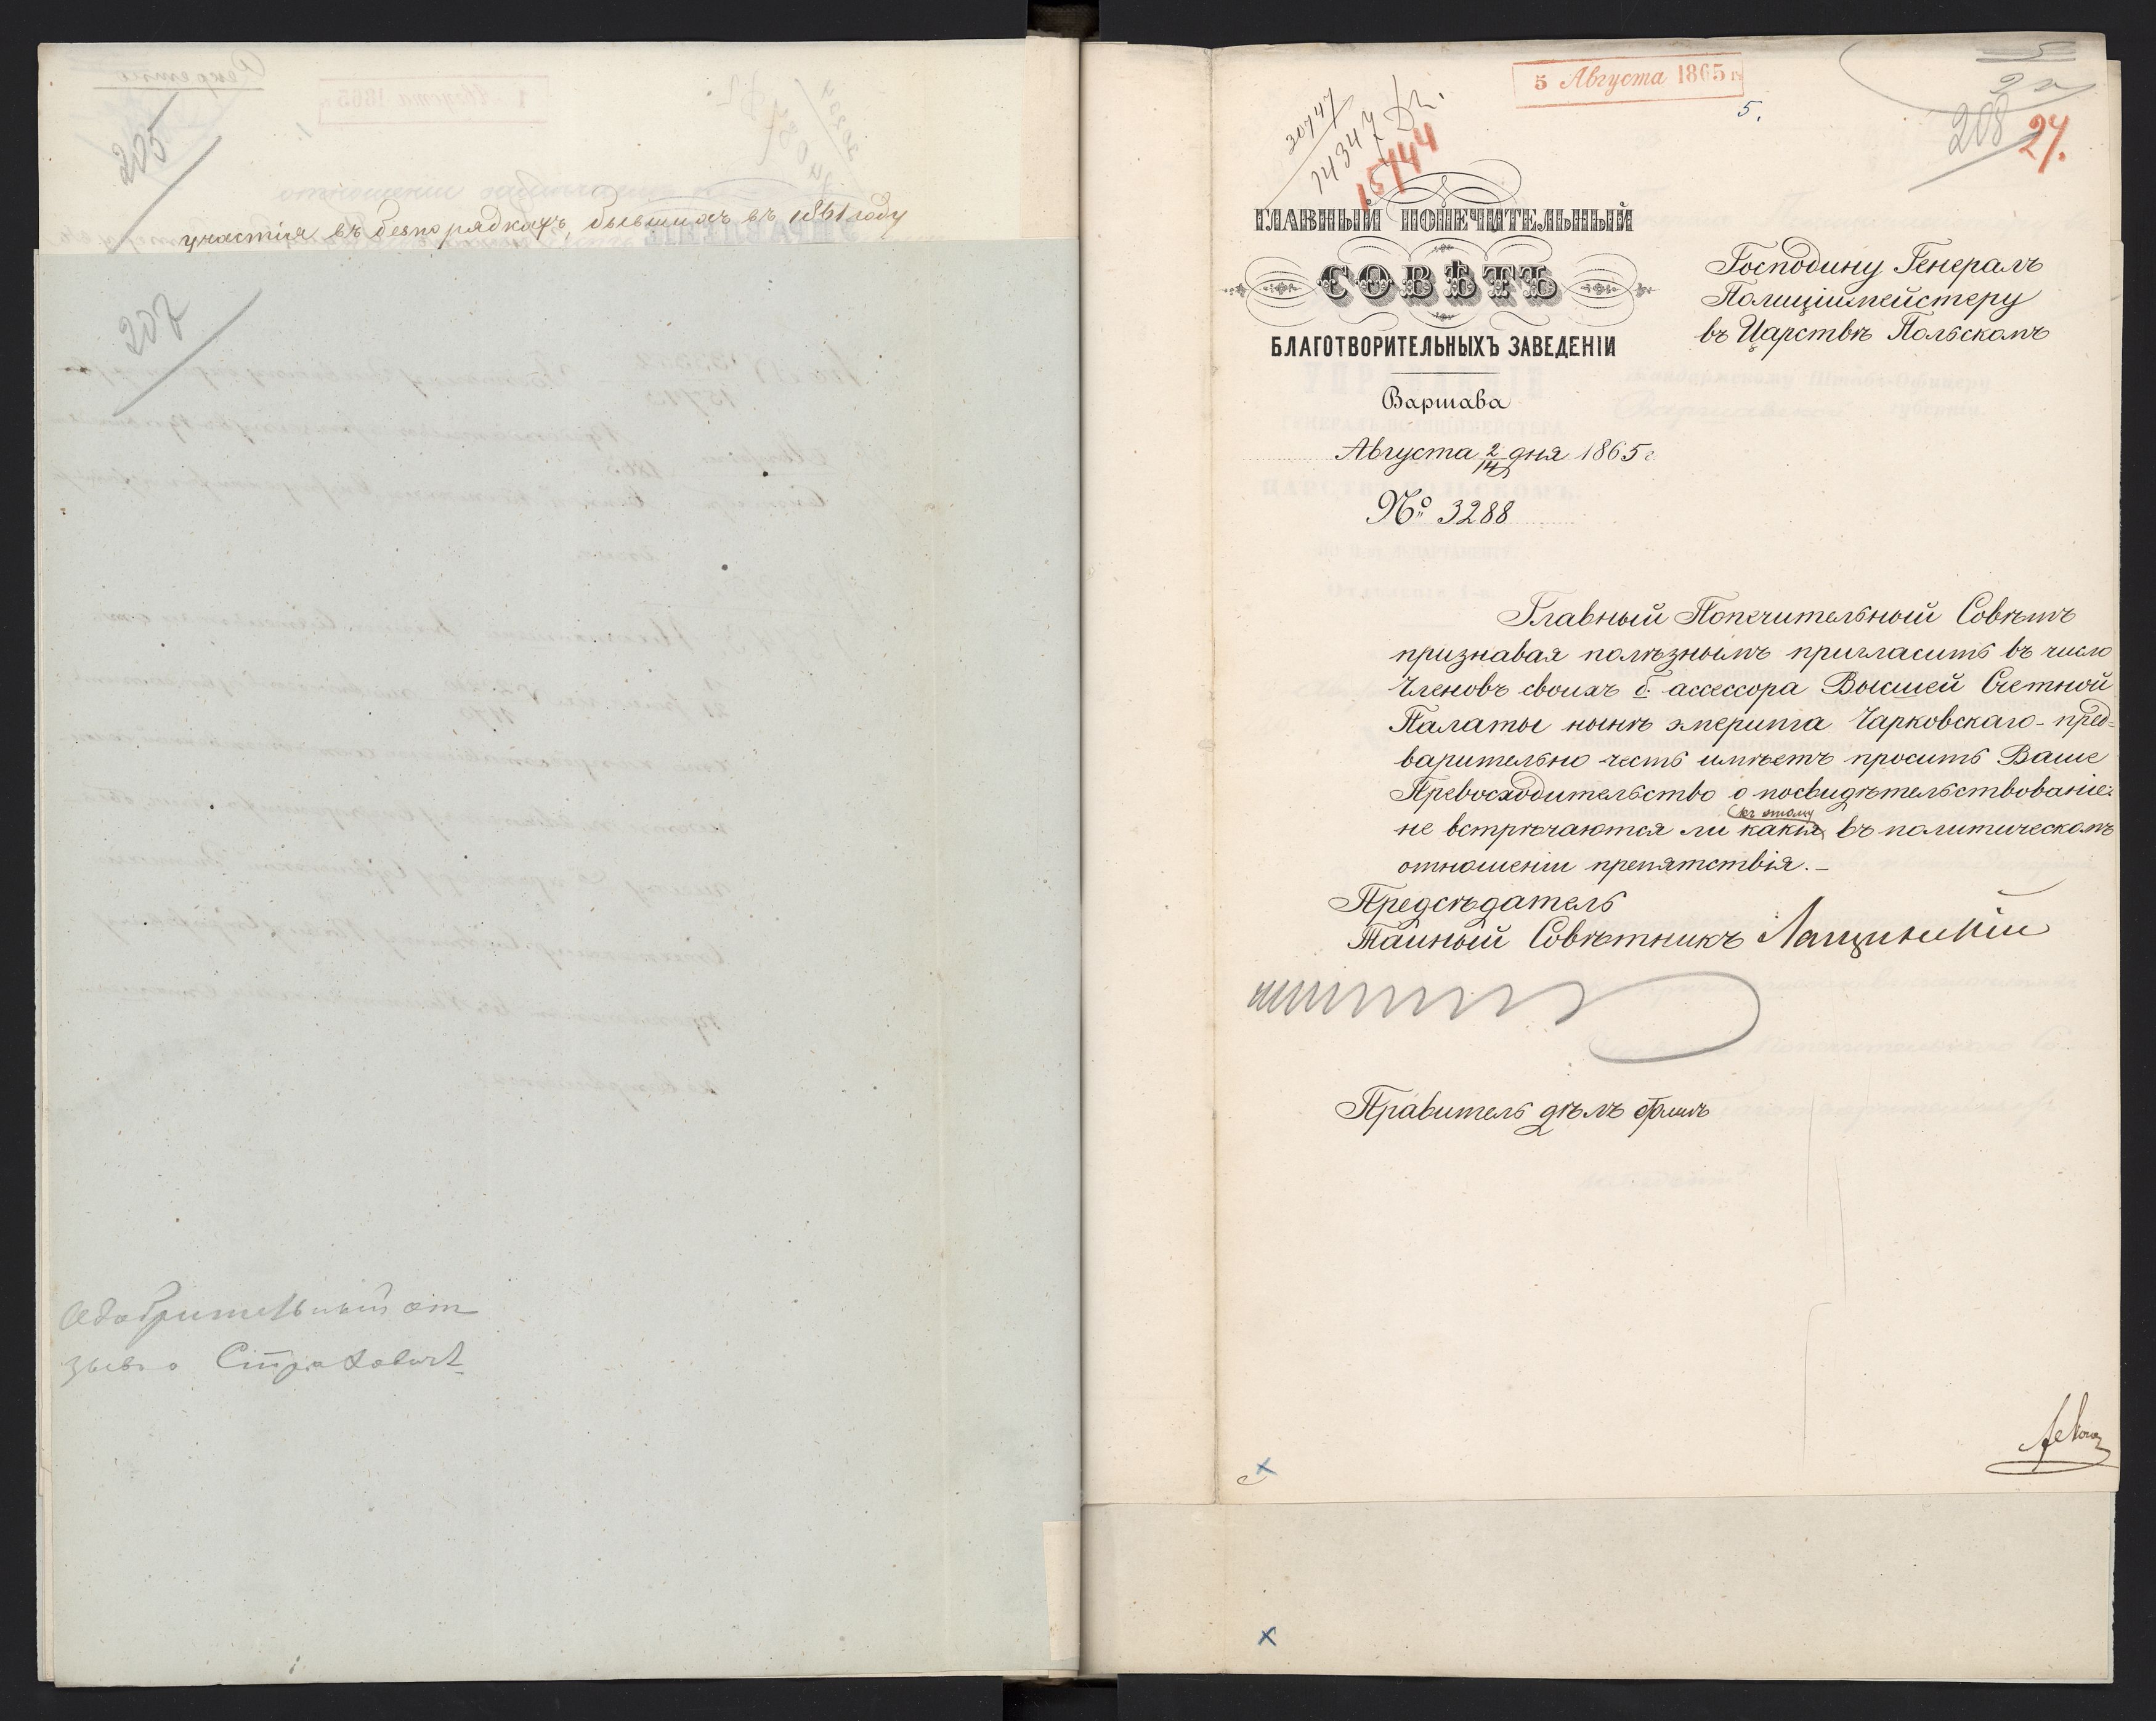 205
участія въ безпорядкахъ, бывшихъ въ 1861 году
207
Одобрительный от
зывъ о
5 Августа 1865 г.
5.
30747
14347
15744
5
208
27.
ГЛАВНЫЙ ПОПЕЧИТЕЛЬНЫЙ
СОВѢТЪ
БЛАГОТВОРИТЕЛЬНЫХЪ ЗАВЕДЕНІЙ
Варшава
Августа 2/14 дня 1865 г.
№ 3288
Господину Генералъ
Полиціймейстеру
въ Царствѣ Польскомъ
Главный Попечительный Совѣтъ
признавая полѣзнымъ пригласить въ число
Членовъ своихъ б. ассессора Высшей Счетной
Палаты нынѣ эмерита Чарковскаго - пред=
варительно честь имѣетъ просить Ваше
Превосходительство о посвидѣтельствованіе:
не встрѣчаются ли къ этому какія въ политическомъ
отношеніи препятствія. –
Предсѣдатель
Тайный Совѣтникъ Лащинскій
Правитель дѣлъ